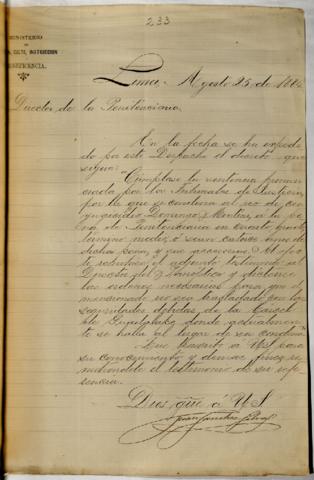 233
MINISTERIO
DE
CULTO, INSTRUCCION
BENEFICENCIA.
Lima, Agosto 25 de
Director de la Penitenciaria
En la fecha se ha expedi
do por este Despacho el decreto que
sigue:
"Cúmplase la sentencia pronun
ciada por los Tribunales de Justicia,
por la que se condena al reo de con
yugicidio Domingo á la pe
na de Penitenciaria en cuarto grado,
término medio, ó sean catorce años de
dicha pena, y sus accesorias
el adjunto testimonio al
Director del y díctense
las órdenes necesarias para que el
mencionado reo sea trasladado con las
seguridades debidas de la Carcel
de donde actualmen
te se halla al lugar de su condena"
Que trascribo á US para
su conocimiento y demas fines, re
mitiéndole el testimonio de su refe
rencia.
Dios gue á US